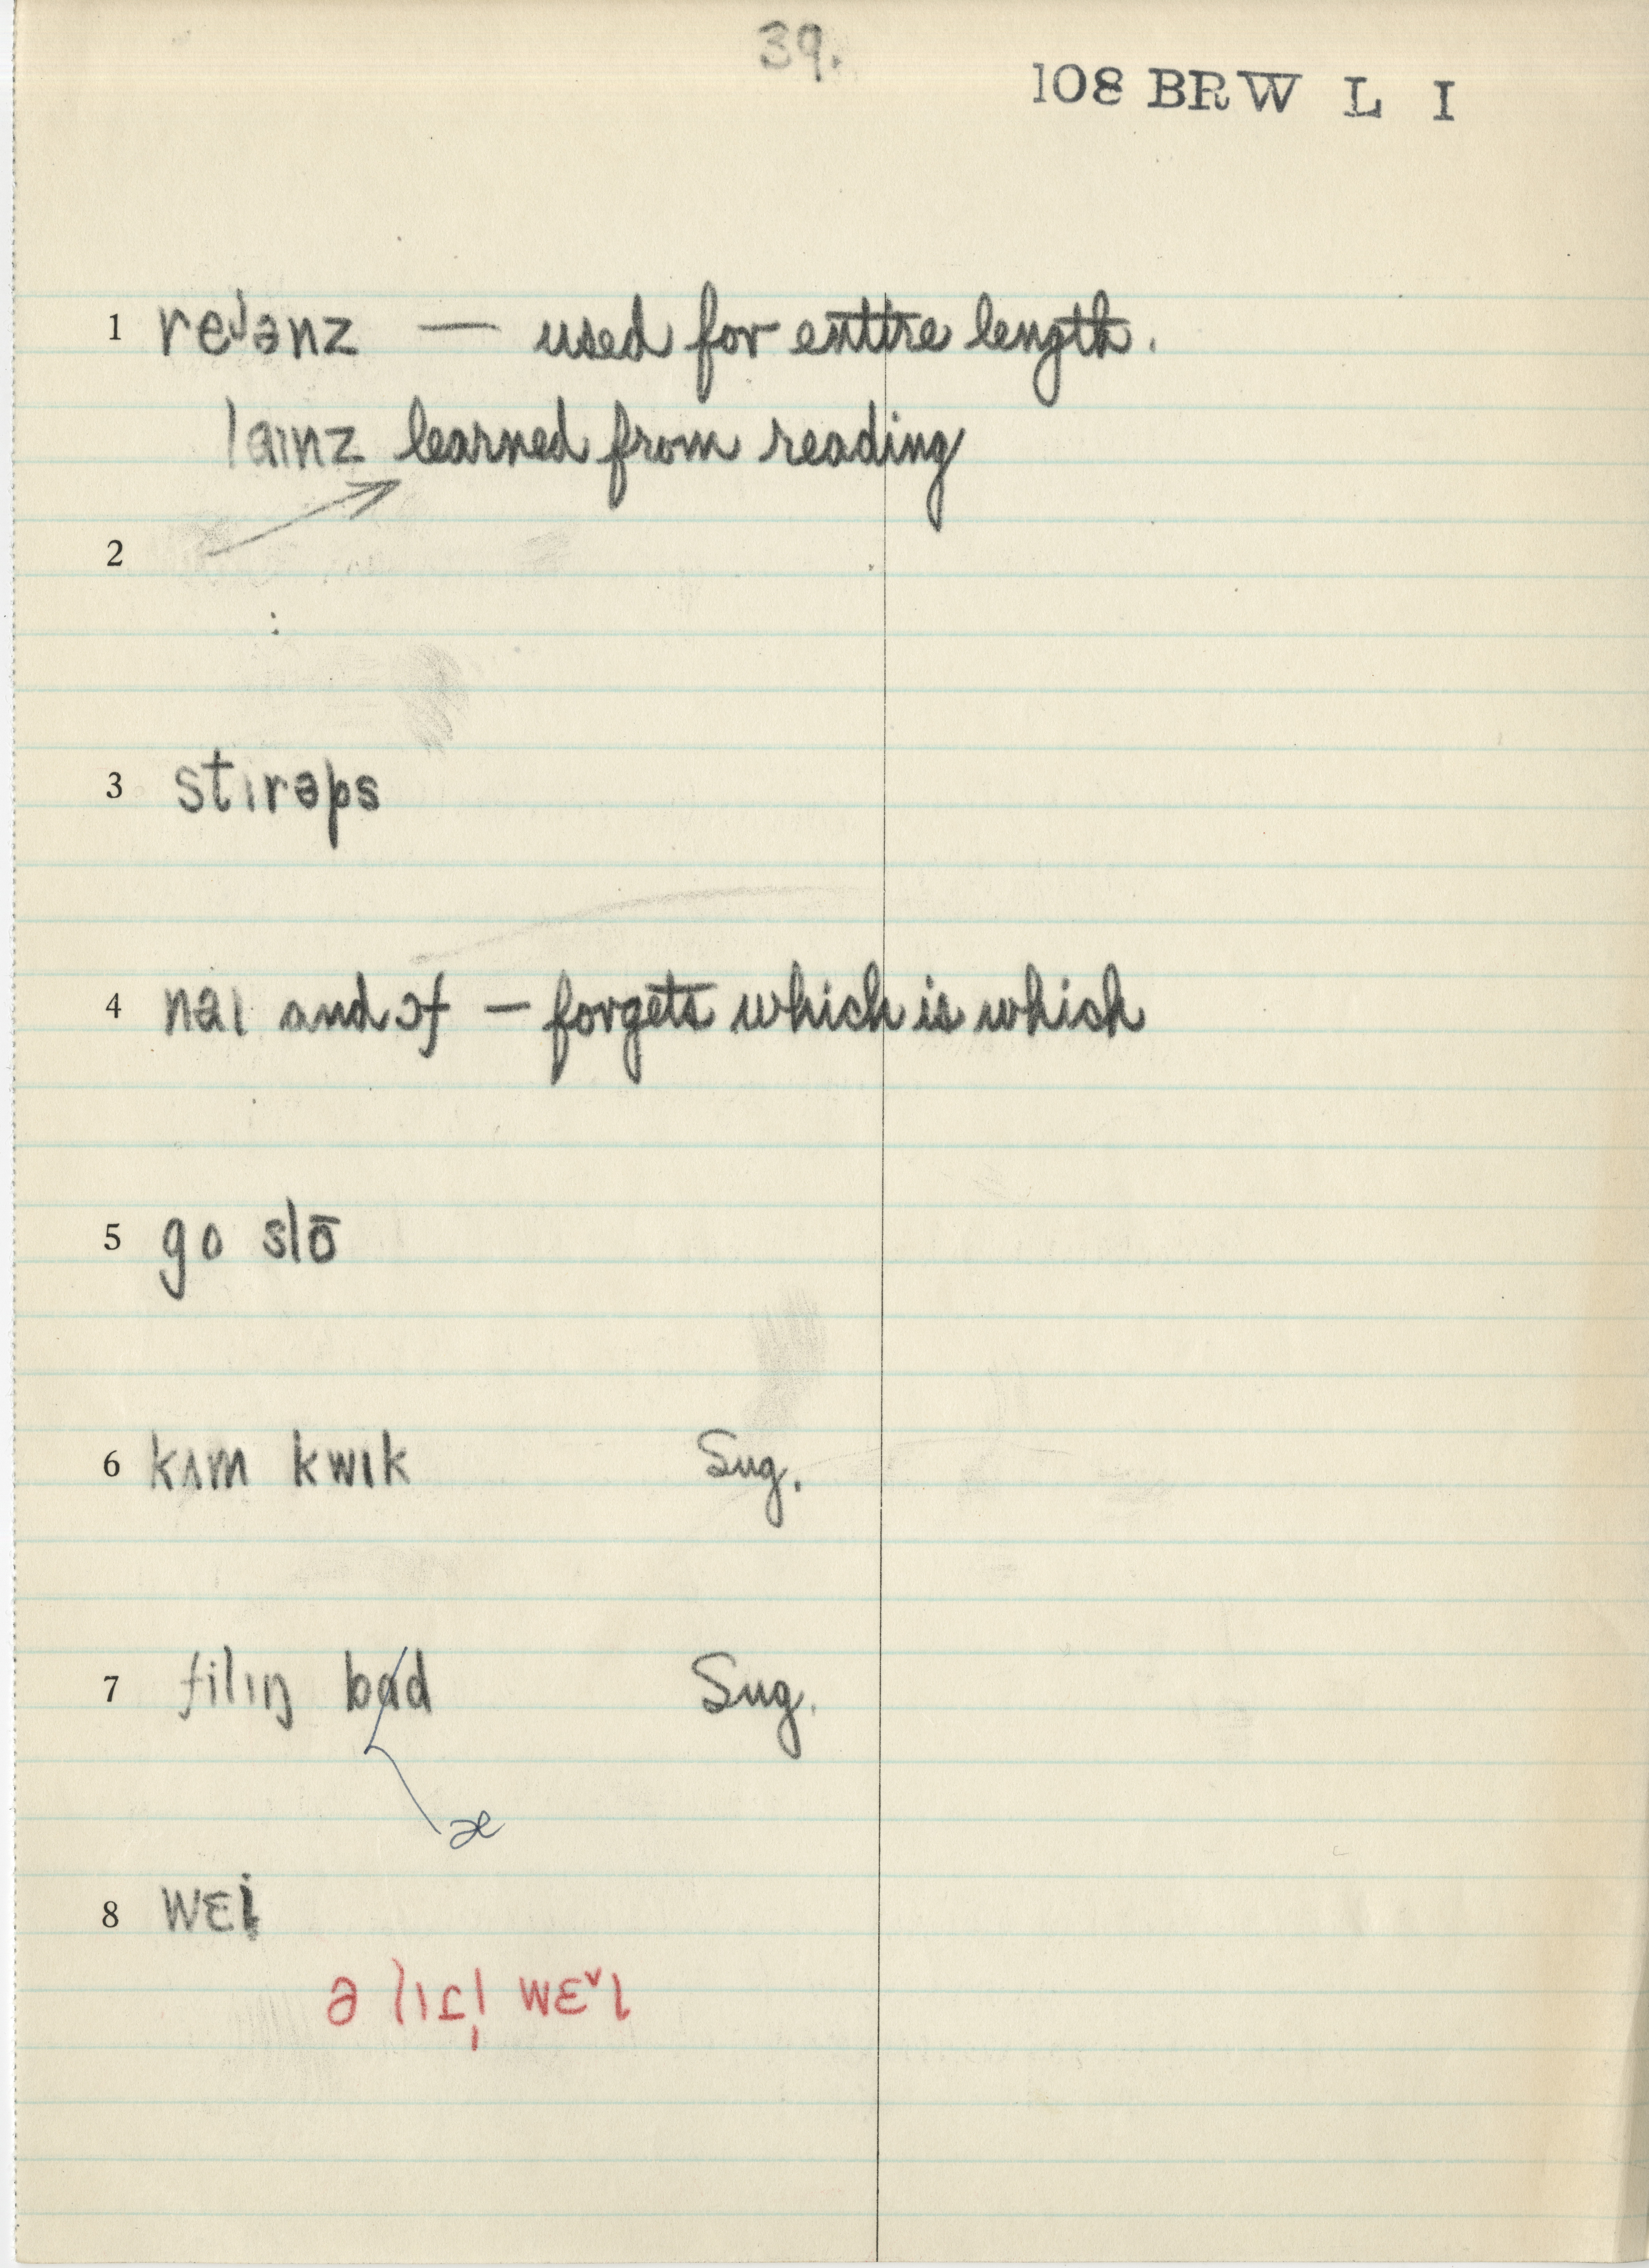 39.
108 BRW L I
1 reᶦənz — used for entire length.
laɪnz learned from reading
2
3 stɪrəps
4 naɪ and ɔf — forgets which is which
5 go slō
6 kʌm kwɪk Sug.
7 filɪŋ bad Sug.
æ
8 wɛi
ə lɪt̬l̩ wɛ˅ɪ